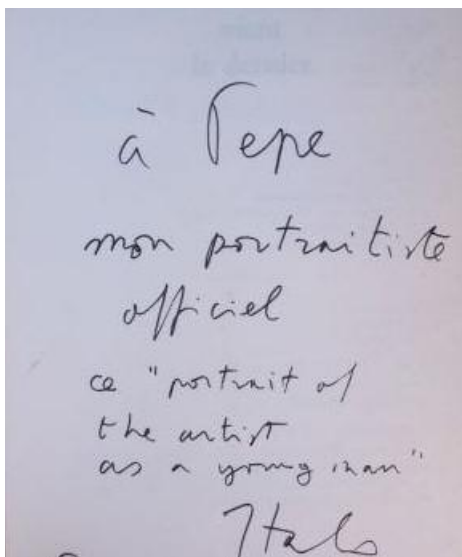 à Pepe
mon portraitiste
officiel
ce "portrait of
the artist
as a young man"
Italo